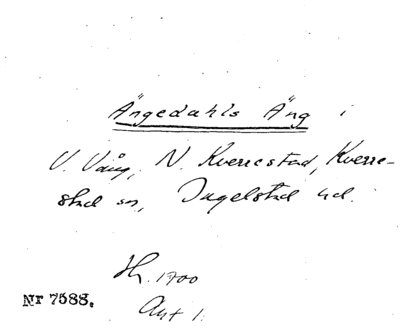 Ängedahls Äng i
V. Vång, N. Kverrestad, Kverre-
stad sn, Ingelstad hd.
Hy. 1700
Akt 1.
Nr 7588.